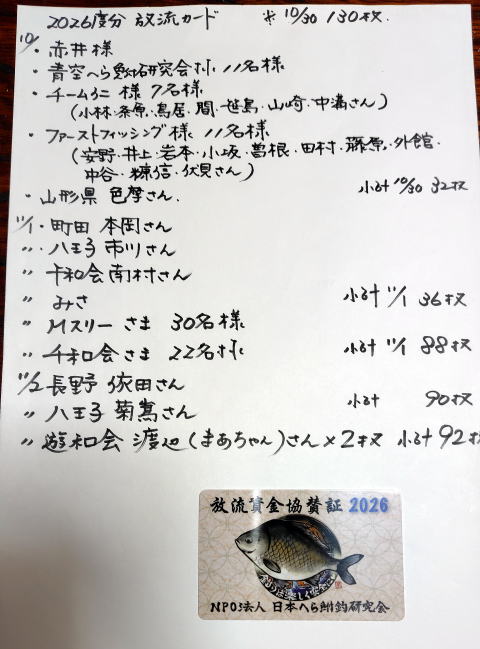 2026度分 放流カード ※10/30 130枚.
10/・赤井様
・青空へら鮒研究会様 11名様
・チームうに様 7名様
(小林・条原・鳥居・間・世島・山崎・中溝さん)
・ファーストフィッシング様 11名様
(安野・井上・岩本・小坂・曽根・田村・藤原・外館・
中谷・糠信・伏見さん)
・山形県 色摩さん. 小計10/30 32枚
11/1・町田 本岡さん
〃・八王子 市川さん
〃 千和会南村さん
〃 みさ 小計 11/1 36枚
〃 Mスリーさま 30名様
〃 千和会さま 22名様 小計 11/1 88枚
11/2 長野 依田さん 小計 90枚
〃 八王子 菊嶌さん
〃 遊和会 渡辺(まあちゃん)さん×2枚 小計92枚
放流資金協賛証 2026
NPO法人 日本へら鮒釣研究会